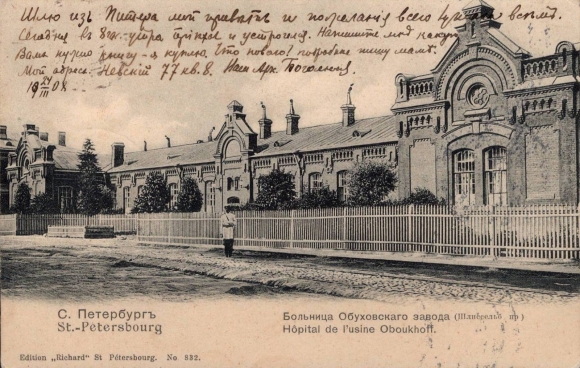 Шлю изъ Питера мой приветъ и пожелания всего всемъ.
Сегодня въ 8 ч. утра и устроился. Напишите мне какую
Вамъ нужно книгу - я куплю. Что нового? подробнее пишу маме.
Мой адресъ. Невскій 77 кв. 8. Вашъ
19 24/III 08.
С. Петербургъ
St.-Pétersbourg
Больница Обуховскаго завода (Шлиссельб. пр)
Hôpital de l'usine Oboukhoff.
Edition „Richard" St Pétersbourg. No 832.